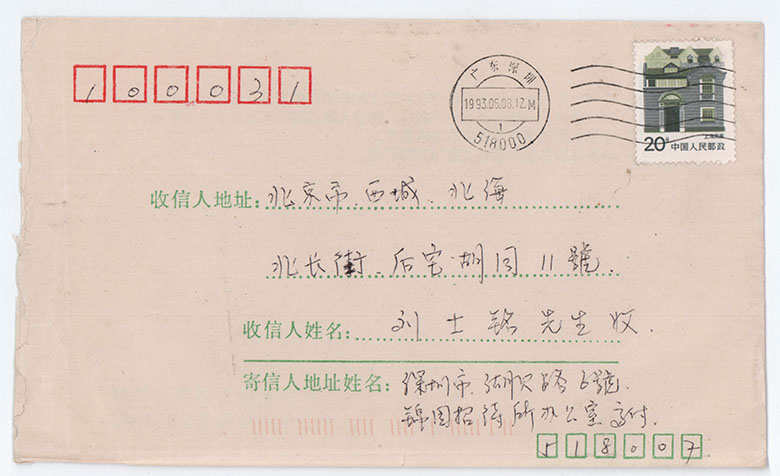 100031
广东深圳
1993.05.08.12.M
1
518000
上海民居
20分
中国人民邮政
收信人地址:北京市.西城.北海
北长街.后宅胡同11號.
收信人姓名:刘士铭先生收.
寄信人地址姓名:深圳市.路6號.
锦园招待所办公室交付.
518007